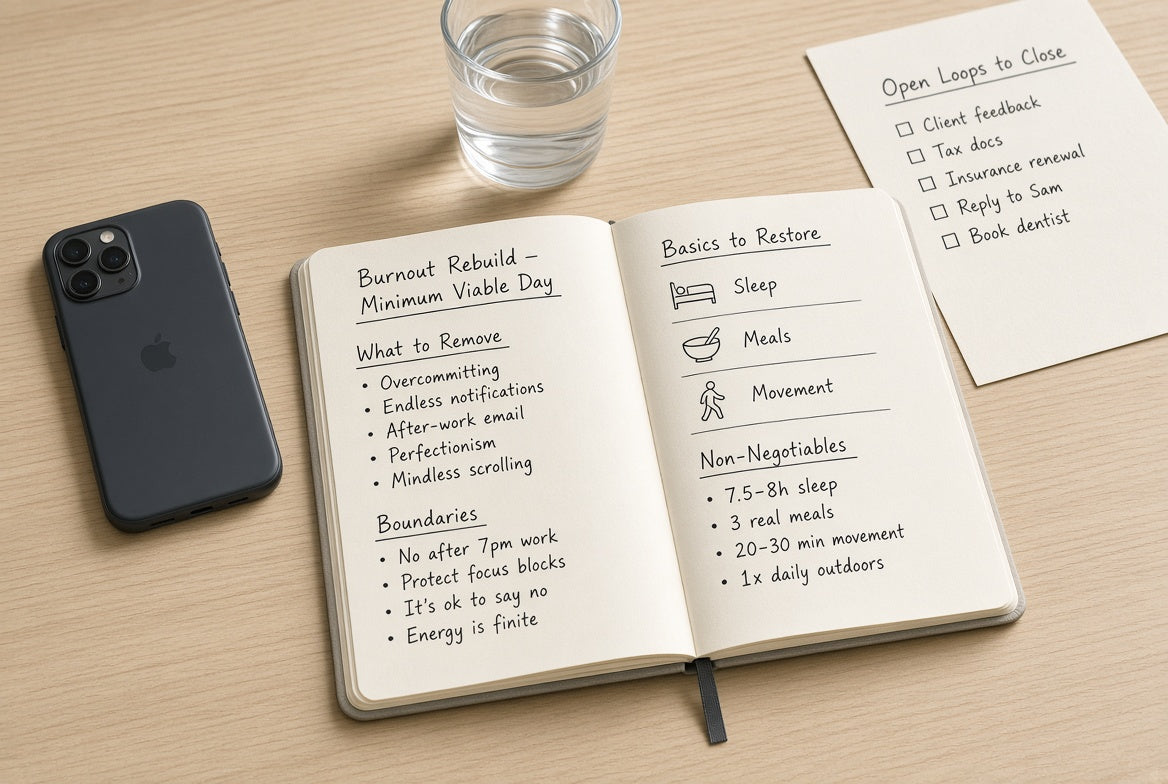 Burnout Rebuild –
Minimum Viable Day
What to Remove
• Overcommitting
• Endless notifications
• After-work email
• Perfectionism
• Mindless scrolling
Boundaries
• No after 7pm work
• Protect focus blocks
• It's ok to say no
• Energy is finite
Basics to Restore
Sleep
Meals
Movement
Non-Negotiables
• 7.5–8h sleep
• 3 real meals
• 20–30 min movement
• 1x daily outdoors
Open Loops to Close
☐ Client feedback
☐ Tax docs
☐ Insurance renewal
☐ Reply to Sam
☐ Book dentist